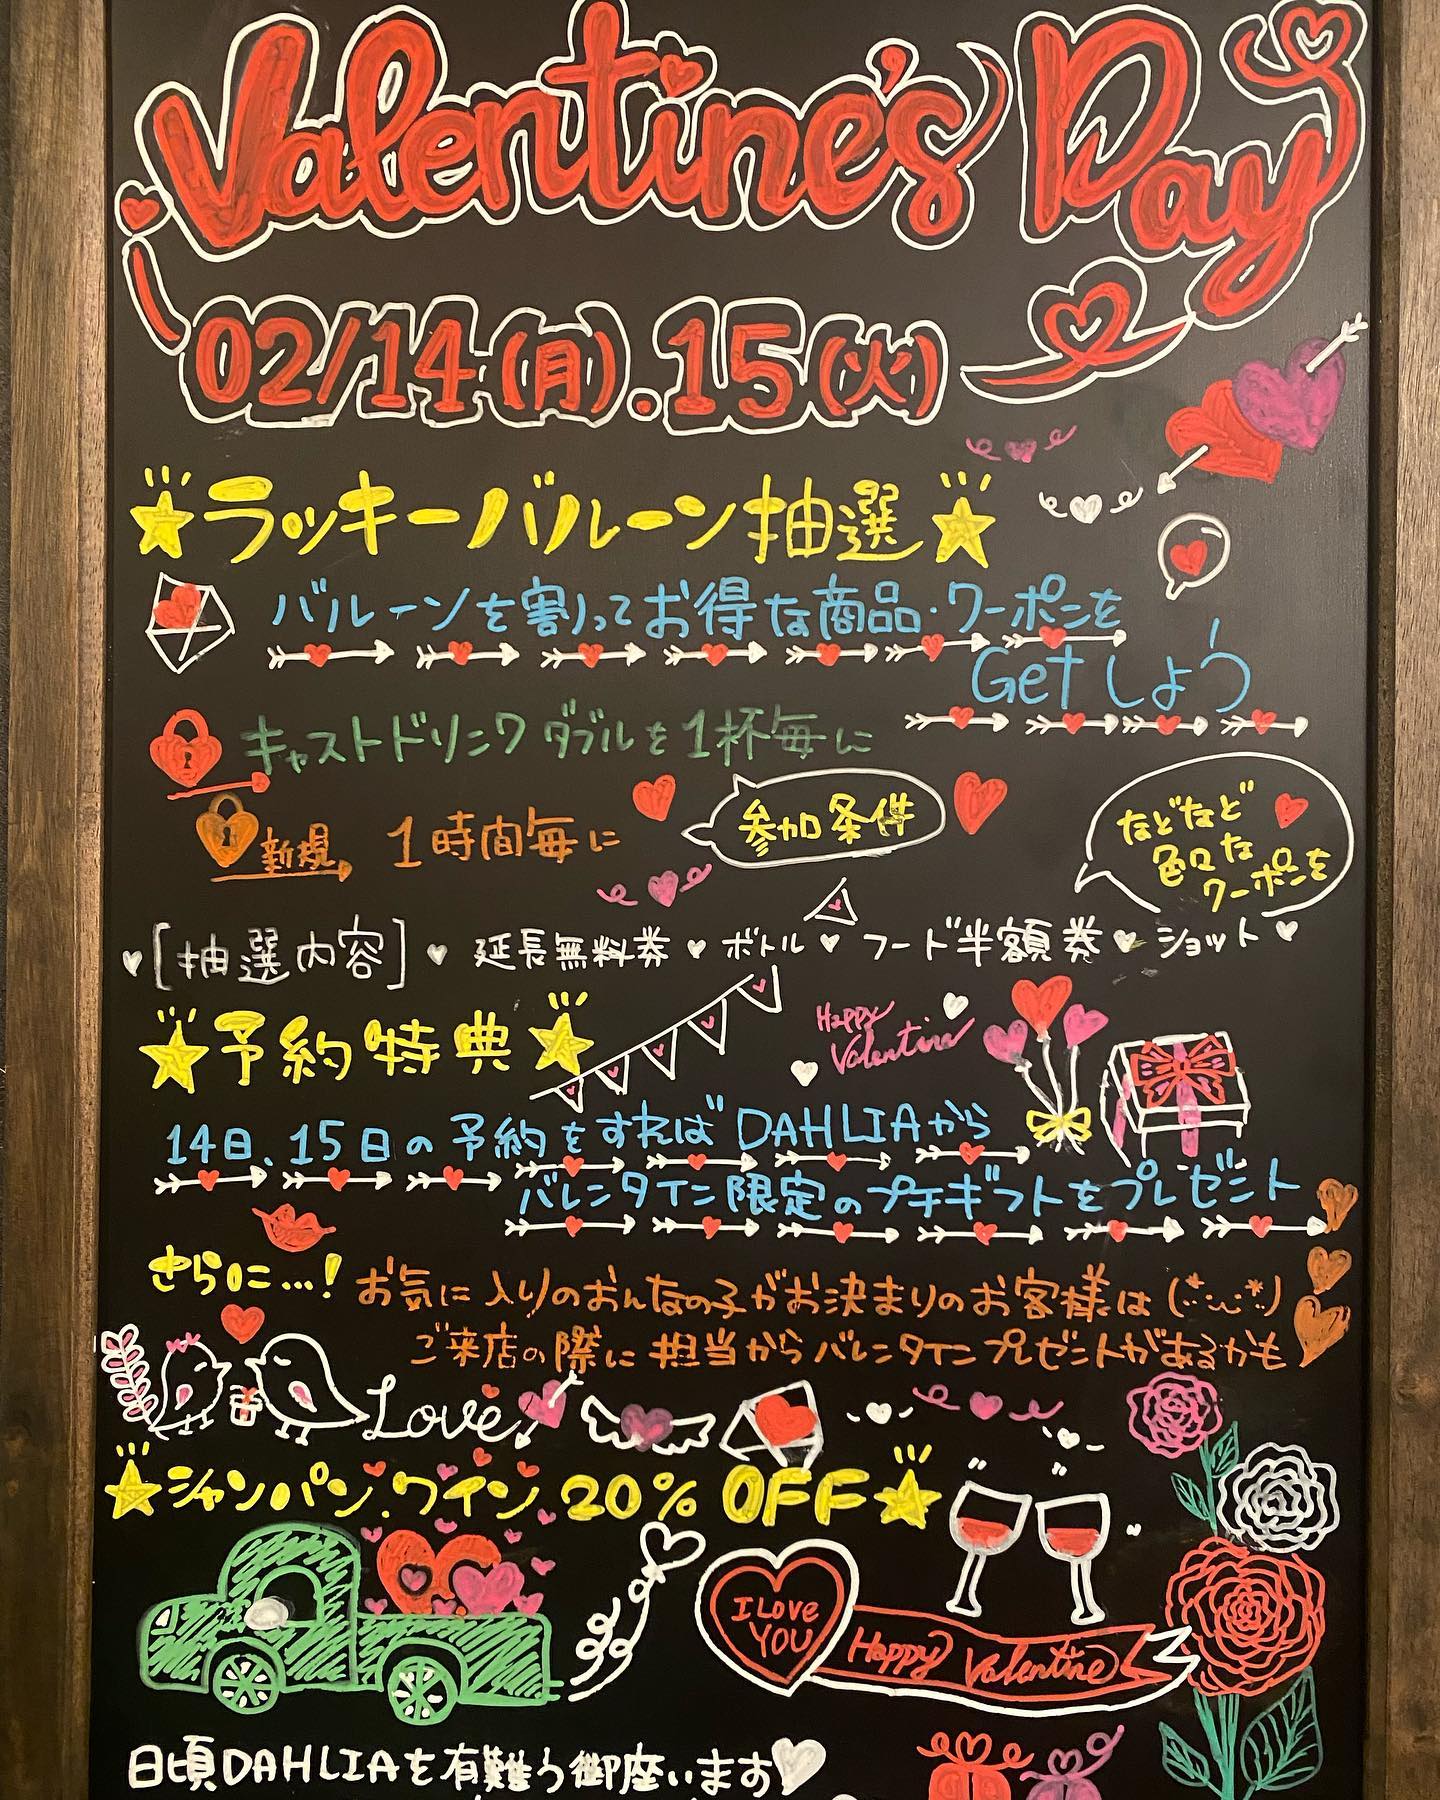 Valentine's Day
02/14(月).15(火)
ラッキーバルーン抽選
バルーンを割ってお得な商品・クーポンを
Getしよう
キャストドリンクダブルを1杯毎に
新規 1時間毎に
参加条件
などなど
色々な
クーポンを
[抽選内容] 延長無料券 ボトル フード半額券 ショット
予約特典
Happy
Valentine
14日、15日の予約をすればDAHLIAから
バレンタイン限定のプチギフトをプレゼント
さらに…! お気に入りのおんなの子がお決まりのお客様は(*¨ω¨*)
ご来店の際に担当からバレンタインプレゼントがあるかも
Love
シャンパン.ワイン 20% OFF
I Love
YOU
Happy Valentine
日頃DAHLIAを有難う御座います